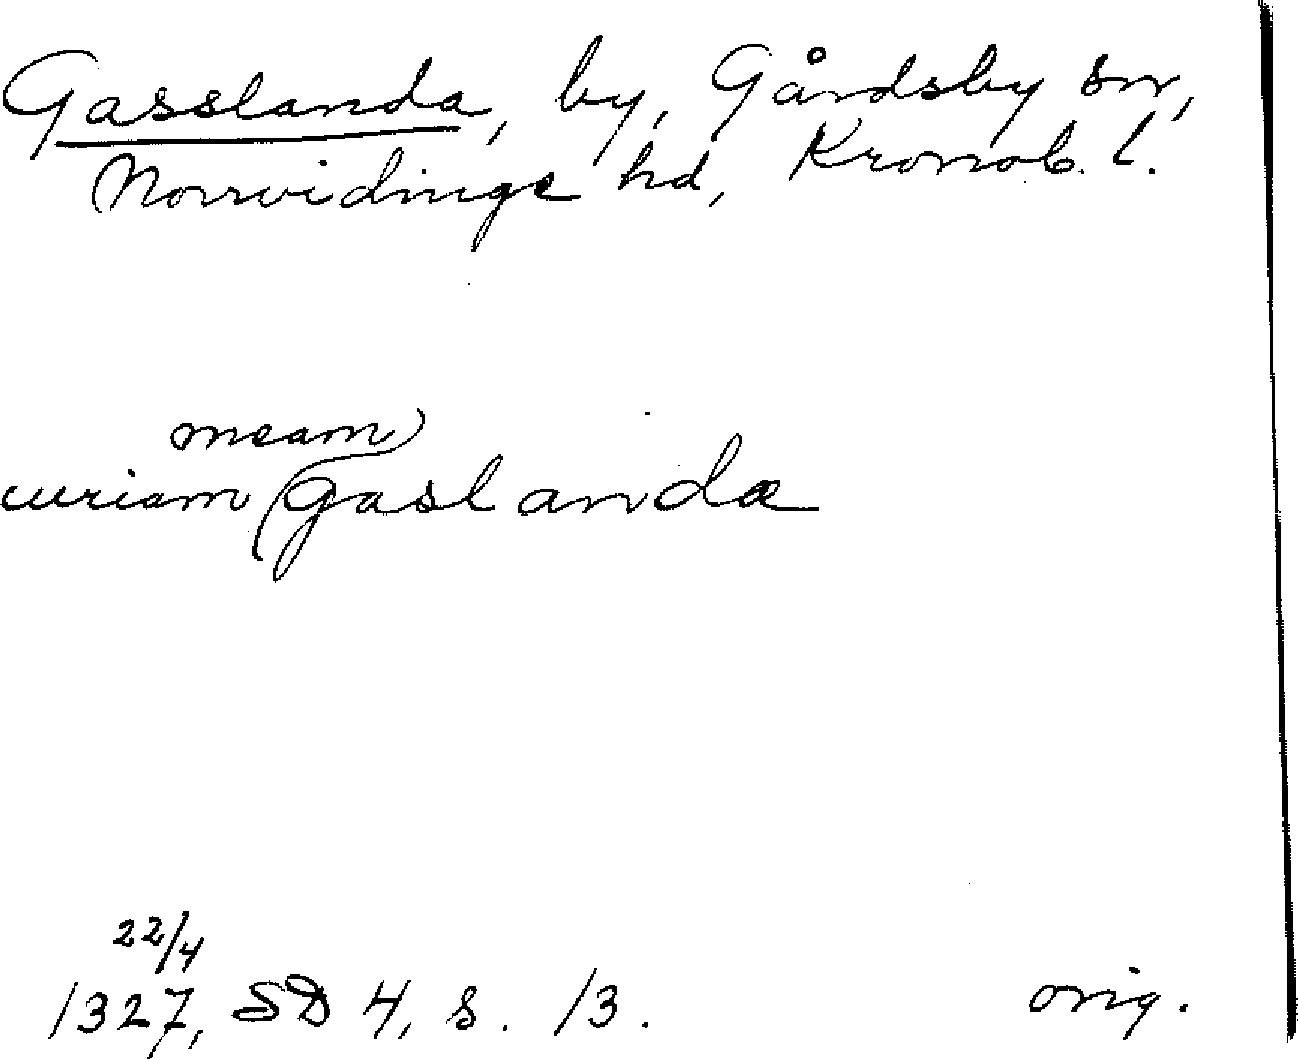 Gasslanda, by, Gårdsby sn,
Norrvidinge hd, Kronob. l.
meam
curiam gaslandæ
22/4
1327, SD 4, s. 13.
orig.